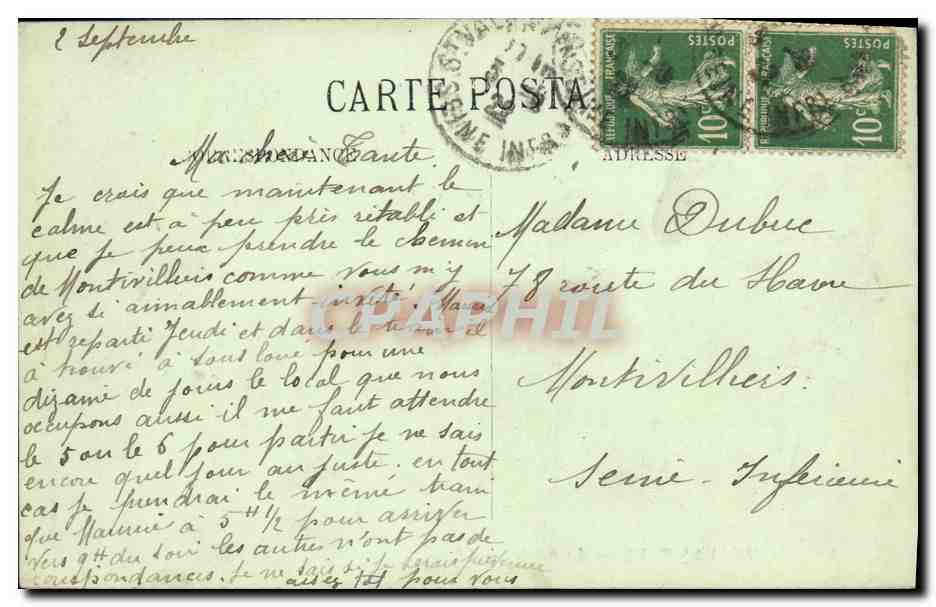 2 Septembre
CARTE POSTA
CORRESPONDANCE
ADRESSE
Ma chère Tante
Je crois que maintenant le
calme est à peu près rétabli et
que je peux prendre le chemin
de Montivilliers comme vous m'y
avez si aimablement invité. Maurice
est reparti Jeudi et dans le train il
à trouvé à sous loué pour une
dizaine de jours le local que nous
occupons aussi il me faut attendre
le 5 ou le 6 pour partir je ne sais
encore quel jour au juste. en tout
cas je prendrai le même train
que Maurice à 5 H 1/2 pour arriver
vers 9 H du soir les autres n'ont pas de
correspondances. Je ne sais si je serais
assez tot pour vous
Madame Dubuc
78 route du Havre
Montivilliers.
Seine Inférieure
ST VALERY
SEINE INFRE
REPUBLIQUE FRANÇAISE
POSTES
10c
REPUBLIQUE
POSTES
10c
CPAPHIL